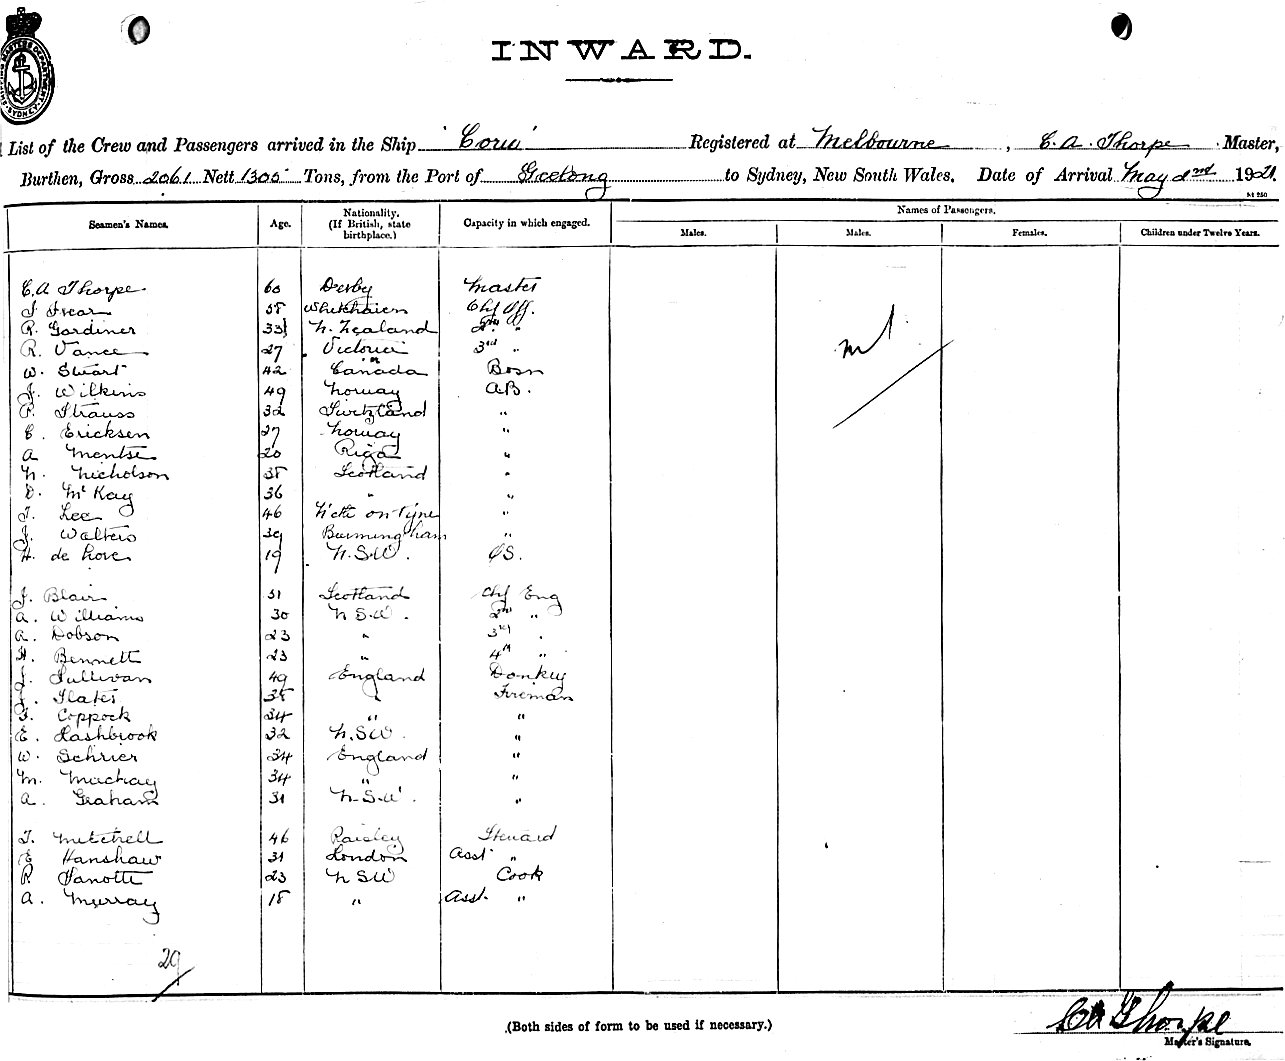 INWARD.
List of the Crew and Passengers arrived in the Ship 'Corio' Registered at Melbourne, C. A. Thorpe Master,
Burthen, Gross 2061 Nett 1305 Tons, from the Port of Geelong to Sydney, New South Wales. Date of Arrival May 2nd 1921
Seamen's Names. Age. Nationality. (If British, state birthplace.) Capacity in which engaged. Names of Passengers.
Males. Males. Females. Children under Twelve Years.
C. A Thorpe 60 Derby Master
J. Frear Whitehaven Chf Off.
R. Gardiner 33 N. Zealand 2nd "
R. Vance 27 Victoria 3rd "
W. Stuart 42 Canada Bosn
J. Wilkins 49 Norway AB.
P. Strauss 32 "
C. Ericksen 27 Norway "
A 20 Riga "
N. Nicholson 38 Scotland "
D. McKay 36 " "
T. Lee 46 N'ctle on Tyne "
J. Walters 39 Burmingham "
H. de Love 19 N.S.W. OS.
J. Blair 51 Scotland Chf Eng
A. Williams 30 N S.W. 2nd "
A. Dobson 23 " 3rd "
H. Bennett 23 " 4th "
J. Sullivan 49 England Donkey
J. Slater 35 " Fireman
Coppock 34 " "
E. Hashbrook 32 N.S.W. "
W. Schrier 34 England "
M. Mackay 34 " "
A. Graham 31 N.S.W. "
T. Mitchell 46 Paisley Steward
E Hanshaw 31 London Asst "
P. Fanotti 23 N S W Cook
A. Murray 18 " Asst. "
29
(Both sides of form to be used if necessary.)
CA Thorpe
Master's Signature.